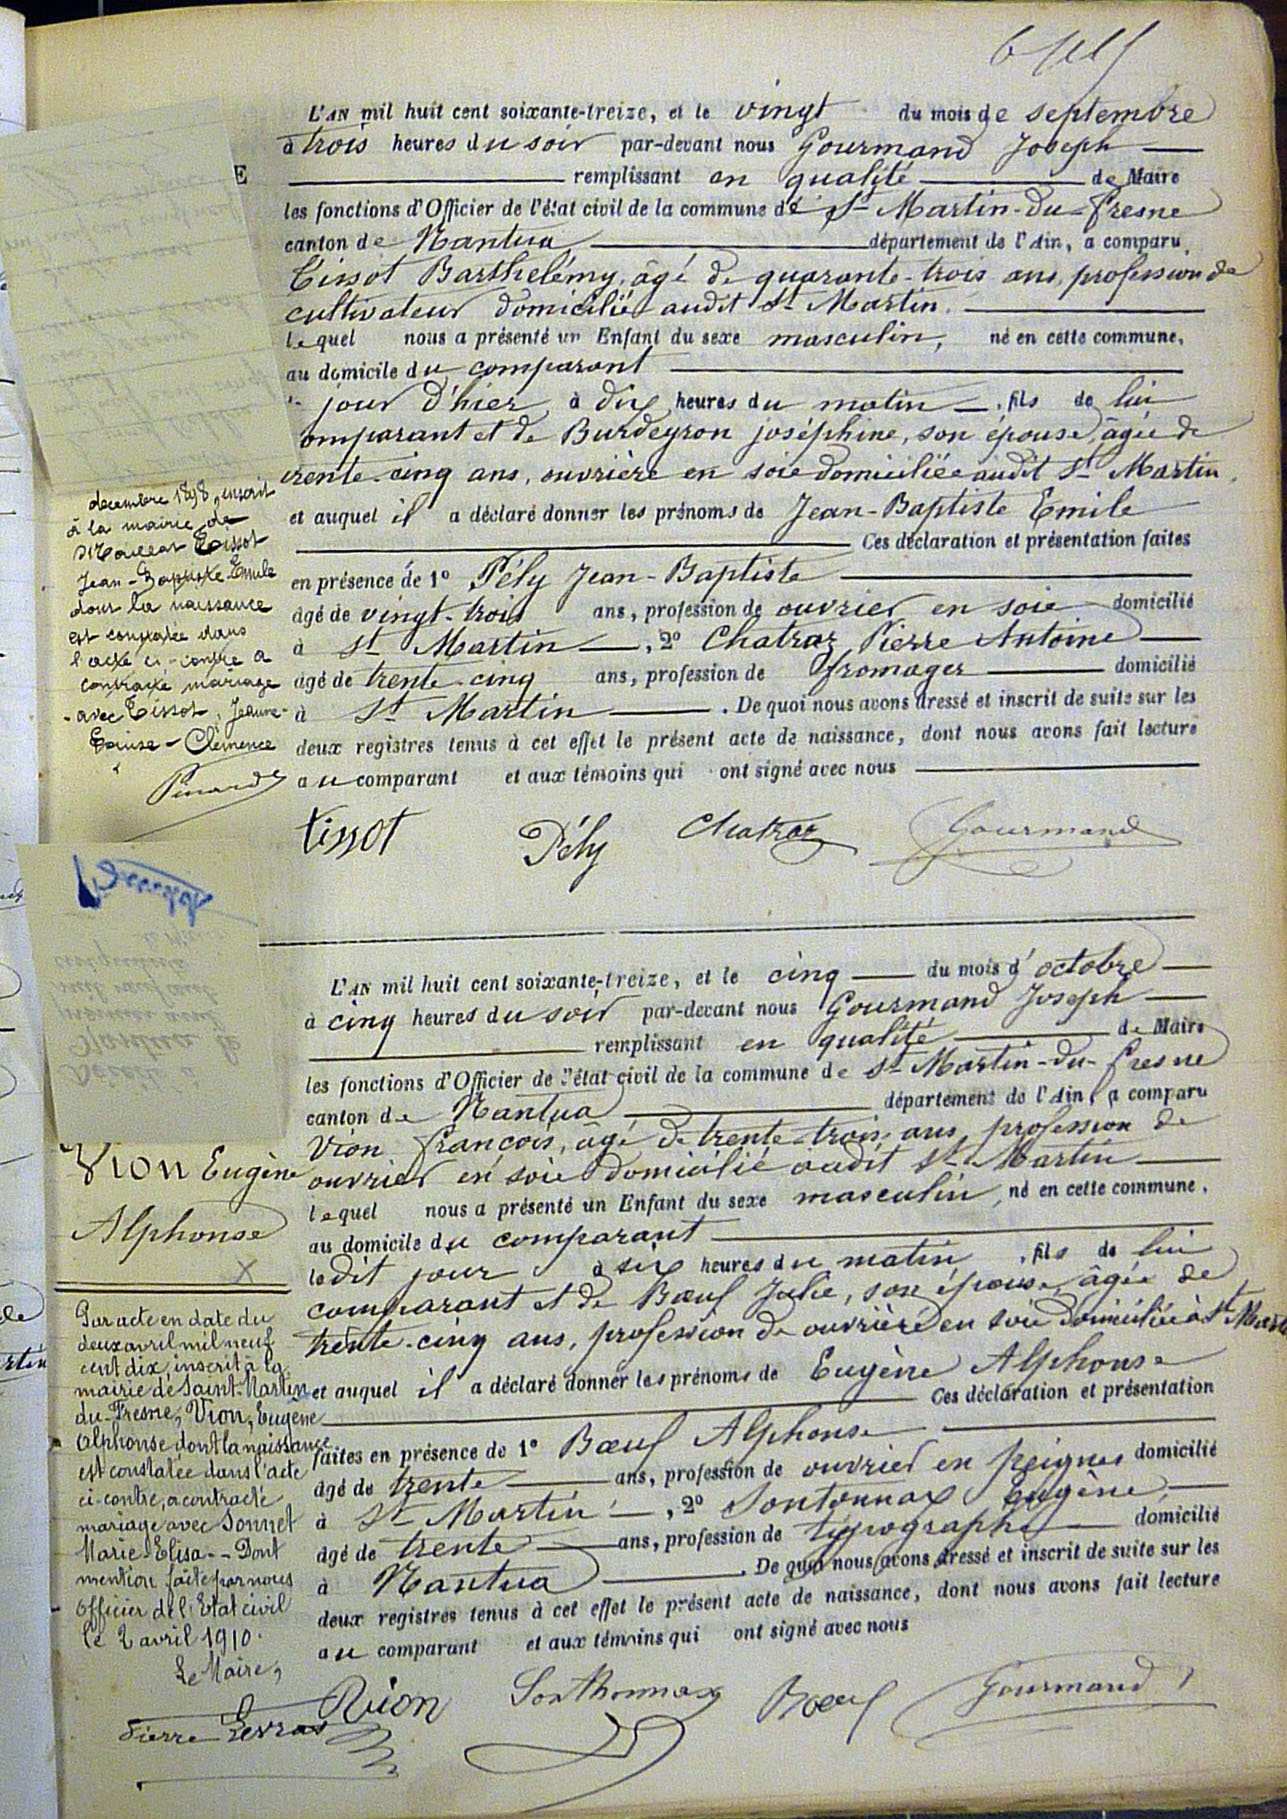 L'AN mil huit cent soixante-treize, et le vingt du mois de septembre
à trois heures du soir par-devant nous Gourmand Joseph
E
remplissant en qualité de Maire
les fonctions d'Officier de l'état civil de la commune de St Martin-du-Fresne
canton de Nantua département de l'Ain, a comparu
Tissot Barthelémy, âgé de quarante-trois ans, profession de
cultivateur domicilié audit St Martin.
lequel nous a présenté un Enfant du sexe masculin, né en cette commune,
au domicile du comparant
jour d'hier à dix heures du matin, fils de lui
omparant et de Burdeyron joséphine, son épouse, âgée de
trente-cinq ans, ouvrière en soie domiciliée audit St Martin,
et auquel il a déclaré donner les prénoms de Jean-Baptiste Emile
Ces déclaration et présentation faites
en présence de 1° Pély Jean-Baptiste
âgé de vingt-trois ans, profession de ouvrier en soie domicilié
à St Martin, 2° Chatraz Pierre Antoine
âgé de trente-cinq ans, profession de fromager domicilié
à St Martin. De quoi nous avons dressé et inscrit de suite sur les
deux registres tenus à cet effet le présent acte de naissance, dont nous avons fait lecture
au comparant et aux témoins qui ont signé avec nous
tissot Pély Chatraz Gourmand
decembre 1898, inscrit
à la mairie de
Maillat Tissot
Jean-Baptiste-Emile
dont la naissance
est constatée dans
l'acte ci-contre a
contracté mariage
avec Tissot, Jeanne-
Louise-Clémence
L'AN mil huit cent soixante-treize, et le cinq du mois d'octobre
à cinq heures du soir par-devant nous Gourmand Joseph
remplissant en qualité de Maire
les fonctions d'Officier de l'état civil de la commune de St Martin-du-Fresne
canton de Nantua département de l'Ain, a comparu
Vion François, âgé de trente-trois ans, profession de
ouvrier en soie domicilié audit St Martin
lequel nous a présenté un Enfant du sexe masculin, né en cette commune,
au domicile du comparant
ledit jour à six heures du matin, fils de lui
comparant et de Bœuf Julie, son épouse, âgée de
trente-cinq ans, profession de ouvrière en soie domiciliée à St Mart
et auquel il a déclaré donner les prénoms de Eugène Alphonse
Ces déclaration et présentation
faites en présence de 1° Bœuf Alphonse
âgé de trente ans, profession de ouvrier en peignes domicilié
à St Martin, 2° Sontonnax Eugène,
âgé de trente ans, profession de typographe domicilié
à Nantua. De quoi nous avons dressé et inscrit de suite sur les
deux registres tenus à cet effet le présent acte de naissance, dont nous avons fait lecture
au comparant et aux témoins qui ont signé avec nous
Vion Sonthonnax Bœuf Gourmand
Vion Eugène
Alphonse
Par acte en date du
deux avril mil neuf
cent dix, inscrit à la
mairie de Saint-Martin
du-Fresne, Vion, Eugène
Alphonse dont la naissance
est constatée dans l'acte
ci-contre, a contracté
mariage avec Sonnet
Marie-Elisa.- Dont
mention faite par nous
Officier de l'Etat civil
le 2 avril 1910.
Le Maire,